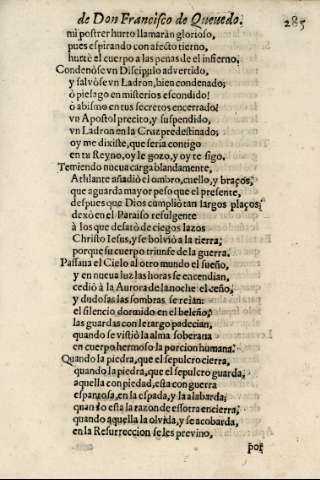 de Don Francisco de Quevedo. 285
mi postrer hurto llamaràn glorioso,
pues espirando con afecto tierno,
hurtè el cuerpo a las penas de el infierno.
Condenòse vn Discipulo advertido,
y salvòse vn Ladron, bien condenado;
ò pielago en misterios escondido!
ò abismo en tus secretos encerrado!
vn Apostol precito, y suspendido,
vn Ladron en la Cruz predestinado;
oy me dixiste, que seria contigo
en tu Reyno, oy le gozo, y oy te sigo.
Temiendo nueua carga blandamente,
Athlante añadiò el ombro, cuello, y braços,
que aguarda mayor peso que el presente,
despues que Dios cumpliò tan largos plaços;
dexò en el Paraiso resulgente
à los que desatò de ciegos lazos
Christo Iesus, y se bolviò a la tierra;
porque su cuerpo triunfe de la guerra.
Passaua el Cielo al otro mundo el sueño,
y en nueua luz las horas se encendian,
cediò à la Aurora de la noche el ceño,
y dudosas las sombras se reìan:
el silencio dormido en el beleño,
las guardas con letargo padecian,
quando se vistiò la alma soberana
en cuerpo hermoso la porcion humana.
Quando la piedra, que el sepulcro cierra,
quando la piedra, que el sepulcro guarda,
aquella con piedad, esta con guerra
espantosa, en la espada, y la alabarda;
quando esta la razon de essotra encierra,
quando aquella la olvida, y se acobarda,
en la Resurreccion se les previno,
por